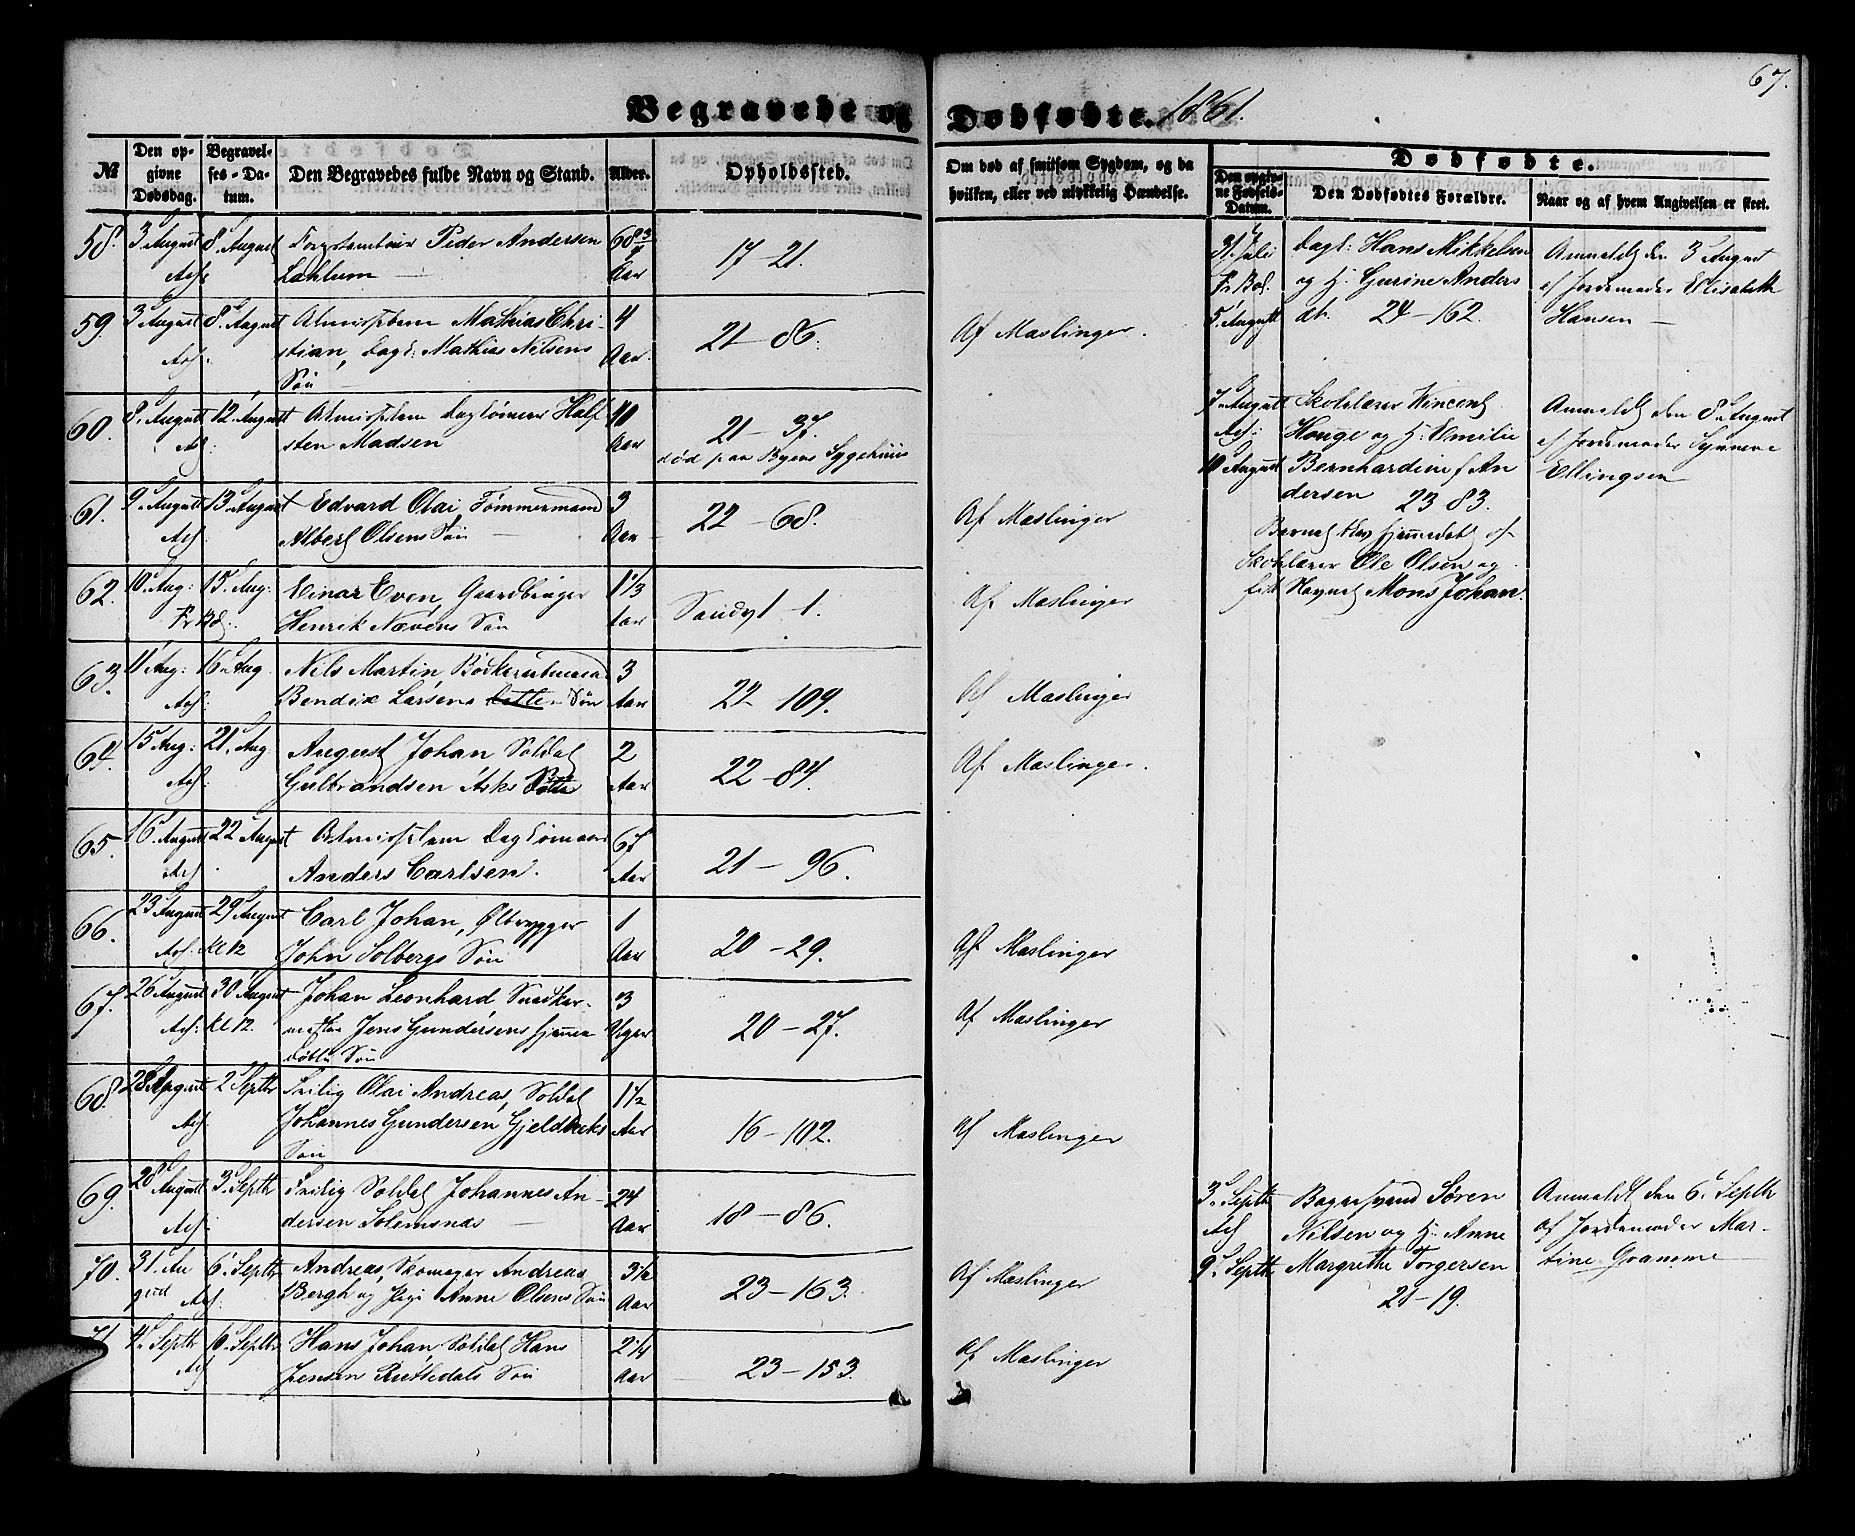 67.
Begravede og Dødfødte. 1861.
№
Den opgivne Dødsdag.
Begravelses-Datum.
Den Begravedes fulde Navn og Stand.
Alder.
Opholdssted.
Om død af smitsom Sygdom, og da hvilken, eller ved ulykkelig Hændelse.
Dødfødte.
Den opgivne Fødsels-Datum.
Den Dødfødtes Forældre.
Naar og af hvem Angivelsen er skeet.
58. 3 August 8. August Peder Andersen 68 3/4
Lahlum Aar 17-21.
59. 3 August 8. August Almisselem Mathias Chri- 4
stian, Dagk: Mathias Nilsens Aar 21-86. Af Mæslinger.
Søn
60. 8. August 12. August Almisselem Half
sten Madsen Aar 21-37.
død paa Byens Sygehuus
61. 9. August 13. August Edvard Olai, Tømmermand 3
Albert Olsens Søn Aar 22-68. Af Mæslinger
62. 10. Aug: 15. Aug: Einar Even, 1 1/3
Henrik Nævens Søn Aar Sandv 1. Af Mæslinger
63. 11 Aug: 16. Aug Nils Martin, 3
Bendix Larsens Søn Aar 22-109. Af Mæslinger
64. 15 Aug: 21. Aug August Johan Soldat 2
Gulbrandsen Asks Aar 22-84. Af Mæslinger.
65. 16. August 22 August Almisselem 67
Anders Carlsen. Aar 21-96.
66. 23 August 29 August Carl Johan, Ølbrygger 1
Kl 12 John Solbergs Søn Aar 20-29. Af Mæslinger
67. 26 August 30 August Johan Leonhard Snedker- 3
Kl 12. mester Jens Gundersens hjemme Uger 20-27. Af Mæslinger
døbte Søn
68. 28 August 2 Septbr Olai Andreas, Soldat 1 1/2
Johannes Gundersen Gjeldbeks Aar 16-102. Af Mæslinger
Søn
69. 28 August 3. Septbr Soldat Johannes An- 24
dersen Solemsnæs Aar 18-86.
70. 31. Au 6. Septbr Andreas, Skomager Andreas 3 1/2
gust Bergh og Pige Anne Olsens Søn Aar 23-163. Af Mæslinger
71. 4. Septbr 6. Septbr Hans Johan, Soldat Hans 2 1/4
Jensen Søn Aar 23-153. Af Mæslinger
31. Juli Dagk: Hans Mikkelsen Anmeldt den 3 August
og H. Gurine Anders af Jordemoder Elisabeth
5. August dt. 24-162. Hansen
7. August Skolelærer Vincent Anmeldt den 8. August
Houge og H. Emilie af Jordemoder Synneve
10 August Bernhardine f An Ellingsen
dersen 23 83.
Barnet blev hjemmedøbt af
Skolelærer Ole Olsen og
fik Navnet Mons Johan.
3. Septbr Bagersvend Søren Anmeldt den 6. Septbr
Nilsen og H. Anne af Jordemoder Mar-
9. Septbr Margrethe Torgersen tine Gramme
21-19.